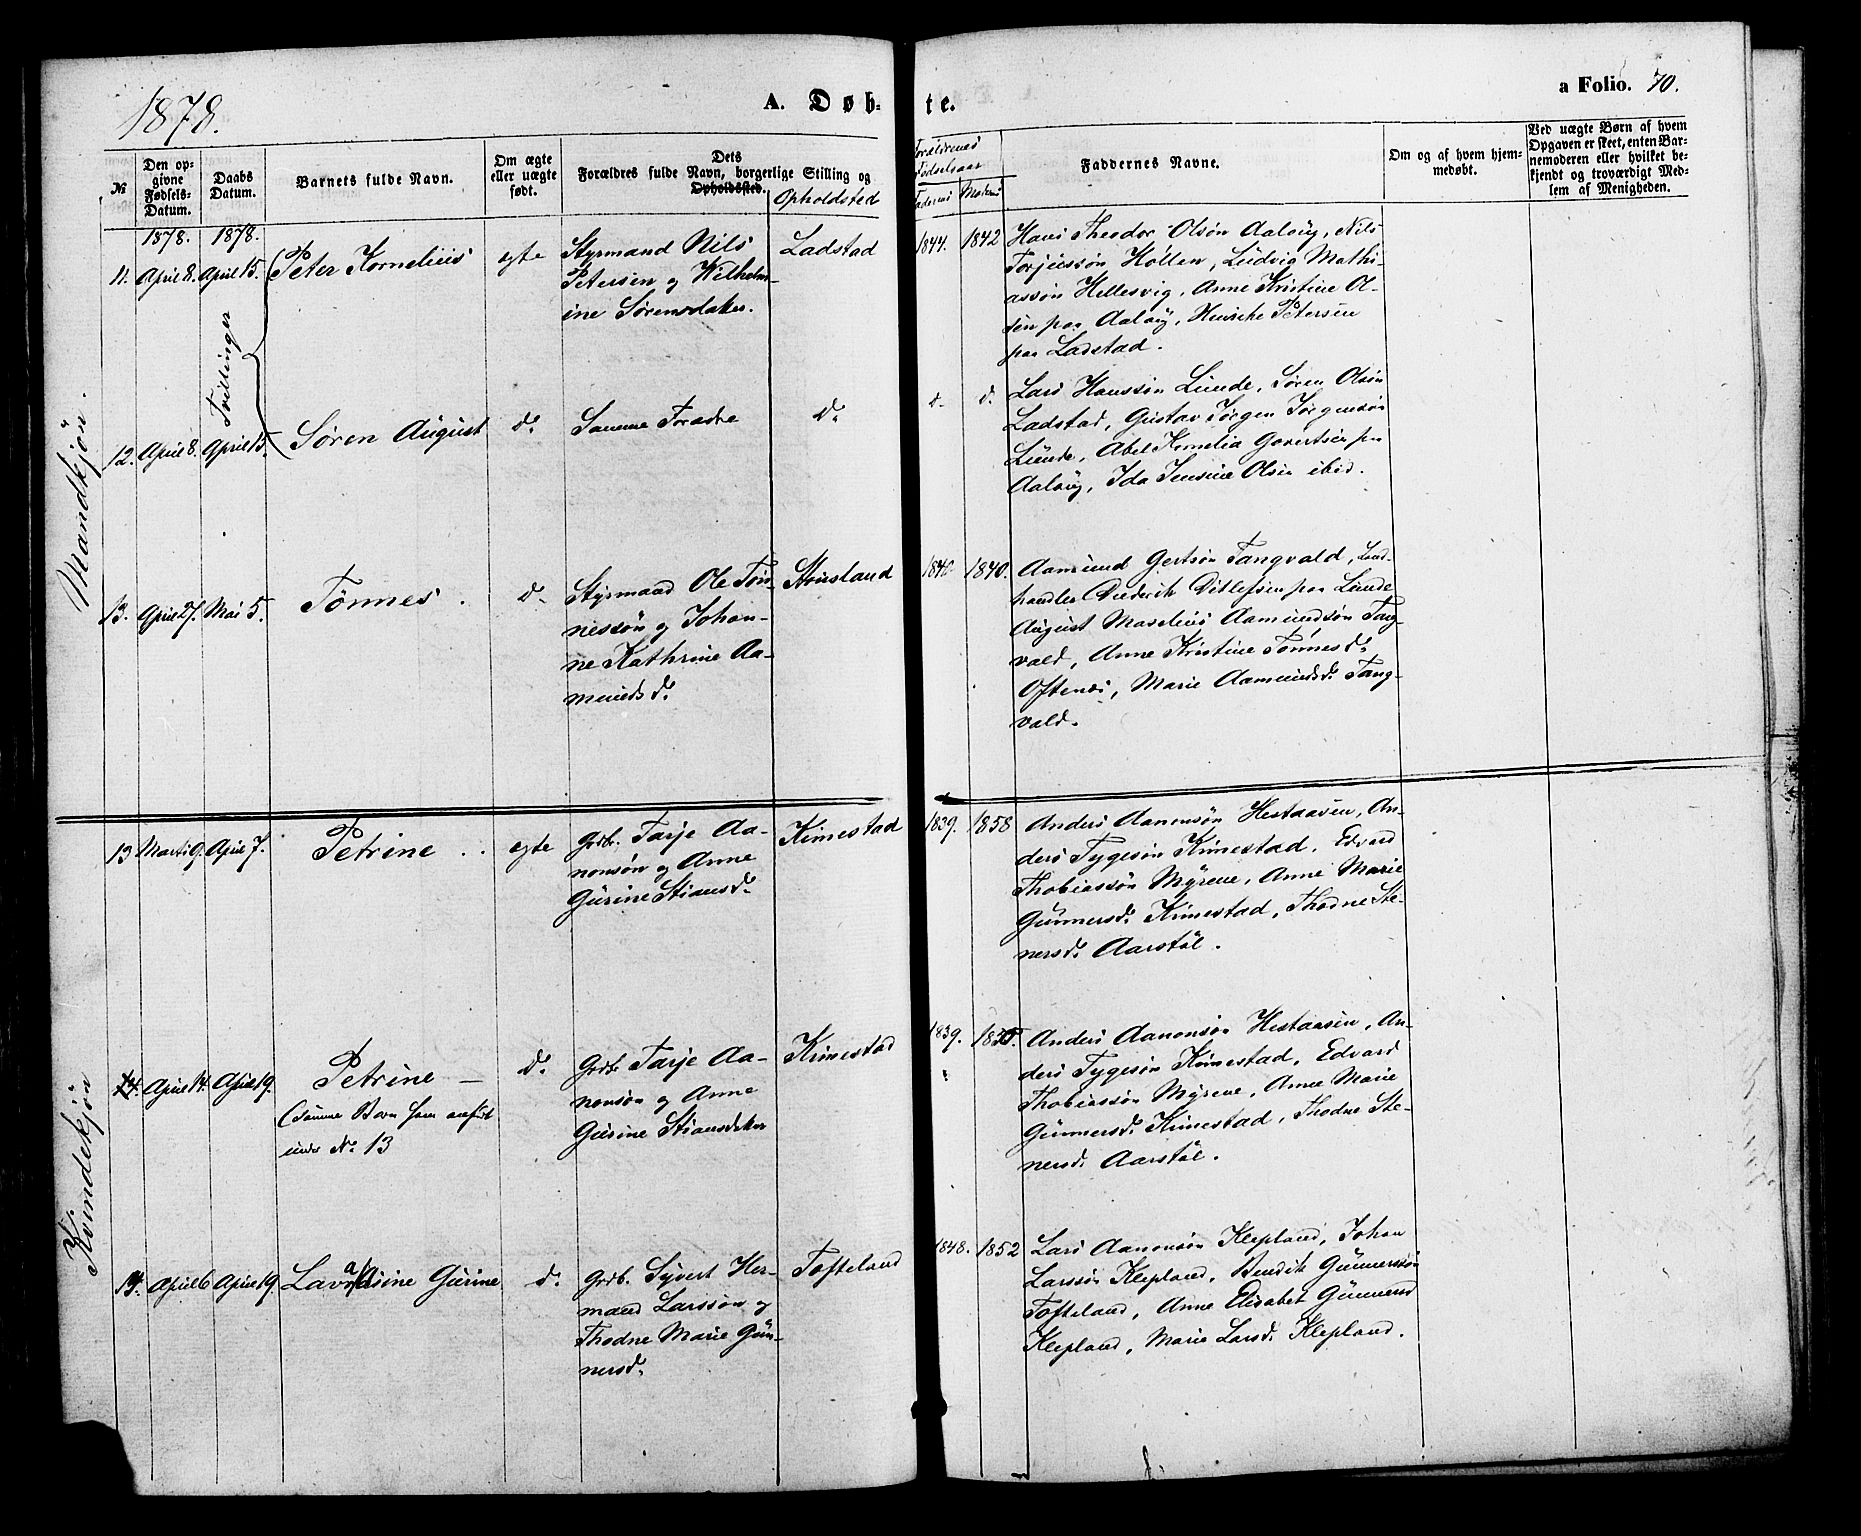 1878.
A. Døb-
te.
a Folio. 70.
№
Den op-
givne
Fødsels-
Datum.
Daabs
Datum.
Barnets fulde Navn.
Om ægte
eller uægte
født.
Dets
Forældres fulde Navn, borgerlige Stilling og
Opholdssted.
Opholdsted
Forældrenes
Fødselsaar
Faderens Moderens
Faddernes Navne.
Om og af hvem hjem-
medøbt.
Ved uægte Børn af hvem
Opgaven er skeet, enten Bar-
nemoderen eller hvilket be-
kjendt og troværdigt Med-
lem af Menigheden.
Mandkjøn.
1878. 1878.
11. April 8. April 15. Peter Kornelius egte
Styrmand Nils
Petersen og Wilhelm-
ine Sørensdater.
Ladstad
1844. 1842
Hans Theodor Olsøn Aaløy, Nils
Torjussøn Hollen, Ludvig Mathi-
assøn Hellesvig, Anne Kristine Ol-
sen paa Aaløy, Petersen
paa Ladstad.
Tvillinger
12. April 8. April 15. Søren August d.
Samme Forædre
d.
d. d.
Lars Hanssøn Lunde, Søren Olsøn
Ladstad, Gustav Jørgen Jørgensøn
Lunde, Abel Kornelia Govertsen paa
Aaløy, Ida Jensine Olsen ibid.
13. April 27. Mai 5. Tønnes. d.
Styrmand Ole Tøn-
nessøn og Johan-
ne Kathrine Aa-
mundsd.
Stusland
1840. 1840.
Aamund Gertsøn Tangvald, Land-
handler Diederik Ditlefsen paa Lunde
August Maselius Aamundsøn Tang-
vald, Anne Kristine Tønnesd.
Oftenes, Marie Aamundsd. Tang-
vald.
Kvindekjøn
13 Marts 9. April 7. Petrine . . egte
Grdb. Tarje Aa-
nonsøn og Anne
Gurine Stiansd.
Kimestad
1839. 1858
Anders Aanonsøn Hestaasen, An-
ders Tygesøn Kimestad, Edvard
Thobiassøn Myrene, Anne Marie
Gunnersd. Kimestad, Thodne Ste-
nersd. Aarstøl.
14. April 14. April 19. Petrine — d.
(samme Barn som anført
under No 13
Grdb. Tarje Aa-
nonsøn og Anne
Gurine Stiansdater
Kimestad
1839.
Anders Aanonsøn Hestaasen, An-
ders Tygesøn Kimestad, Edvard
Thobiassøn Myrene, Anne Marie
Gunnersd. Kimestad, Thodne Ste-
nersd. Aarstøl.
14. April 6 April 19. Gurine d.
Grdb. Syvert Her-
mand Larssøn og
Thodne Marie Gun-
nersd.
Tofteland
1848. 1852
Lars Aanonsøn Klepland, Johan
Larssøn Klepland, Bendik Gunnerssøn
Tofteland, Anne Elisabet Gunnersd
Klepland, Marie Larsd. Klepland.